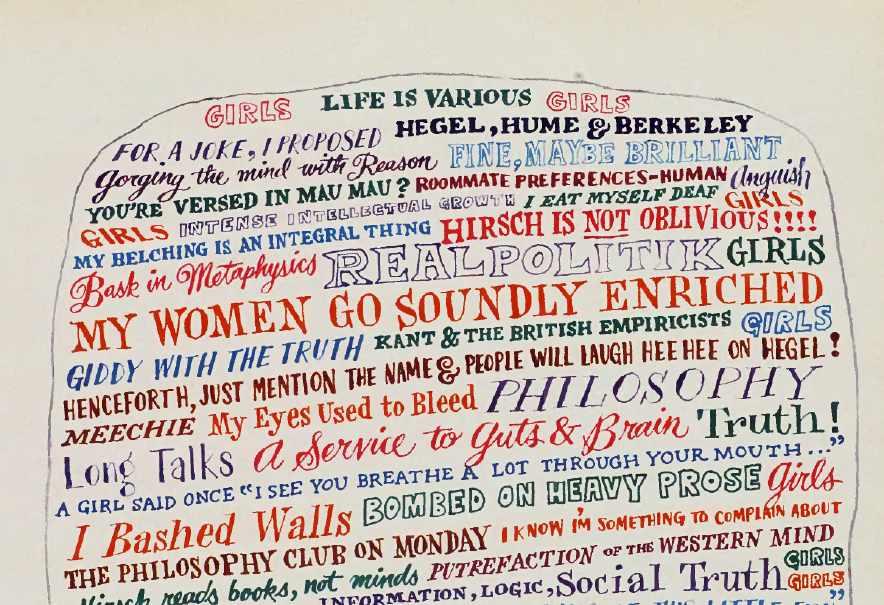 GIRLS LIFE IS VARIOUS GIRLS
FOR A JOKE, I PROPOSED HEGEL, HUME & BERKELEY
Gorging the mind with Reason FINE, MAYBE BRILLIANT
YOU'RE VERSED IN MAU MAU? ROOMMATE PREFERENCES-HUMAN Anguish
GIRLS INTENSE INTELLECTUAL GROWTH I EAT MYSELF DEAF GIRLS
MY BELCHING IS AN INTEGRAL THING HIRSCH IS NOT OBLIVIOUS!!!!
Bask in Metaphysics REALPOLITIK GIRLS
MY WOMEN GO SOUNDLY ENRICHED
GIDDY WITH THE TRUTH KANT & THE BRITISH EMPIRICISTS GIRLS
HENCEFORTH, JUST MENTION THE NAME & PEOPLE WILL LAUGH HEE HEE ON HEGEL!
MEECHIE My Eyes Used to Bleed PHILOSOPHY
Long Talks A Service to Guts & Brain Truth!
A GIRL SAID ONCE "I SEE YOU BREATHE A LOT THROUGH YOUR MOUTH..."
I Bashed Walls BOMBED ON HEAVY PROSE Girls
THE PHILOSOPHY CLUB ON MONDAY I KNOW I'M SOMETHING TO COMPLAIN ABOUT
Hirsch reads books, not minds PUTREFACTION OF THE WESTERN MIND
INFORMATION, LOGIC, Social Truth GIRLS GIRLS